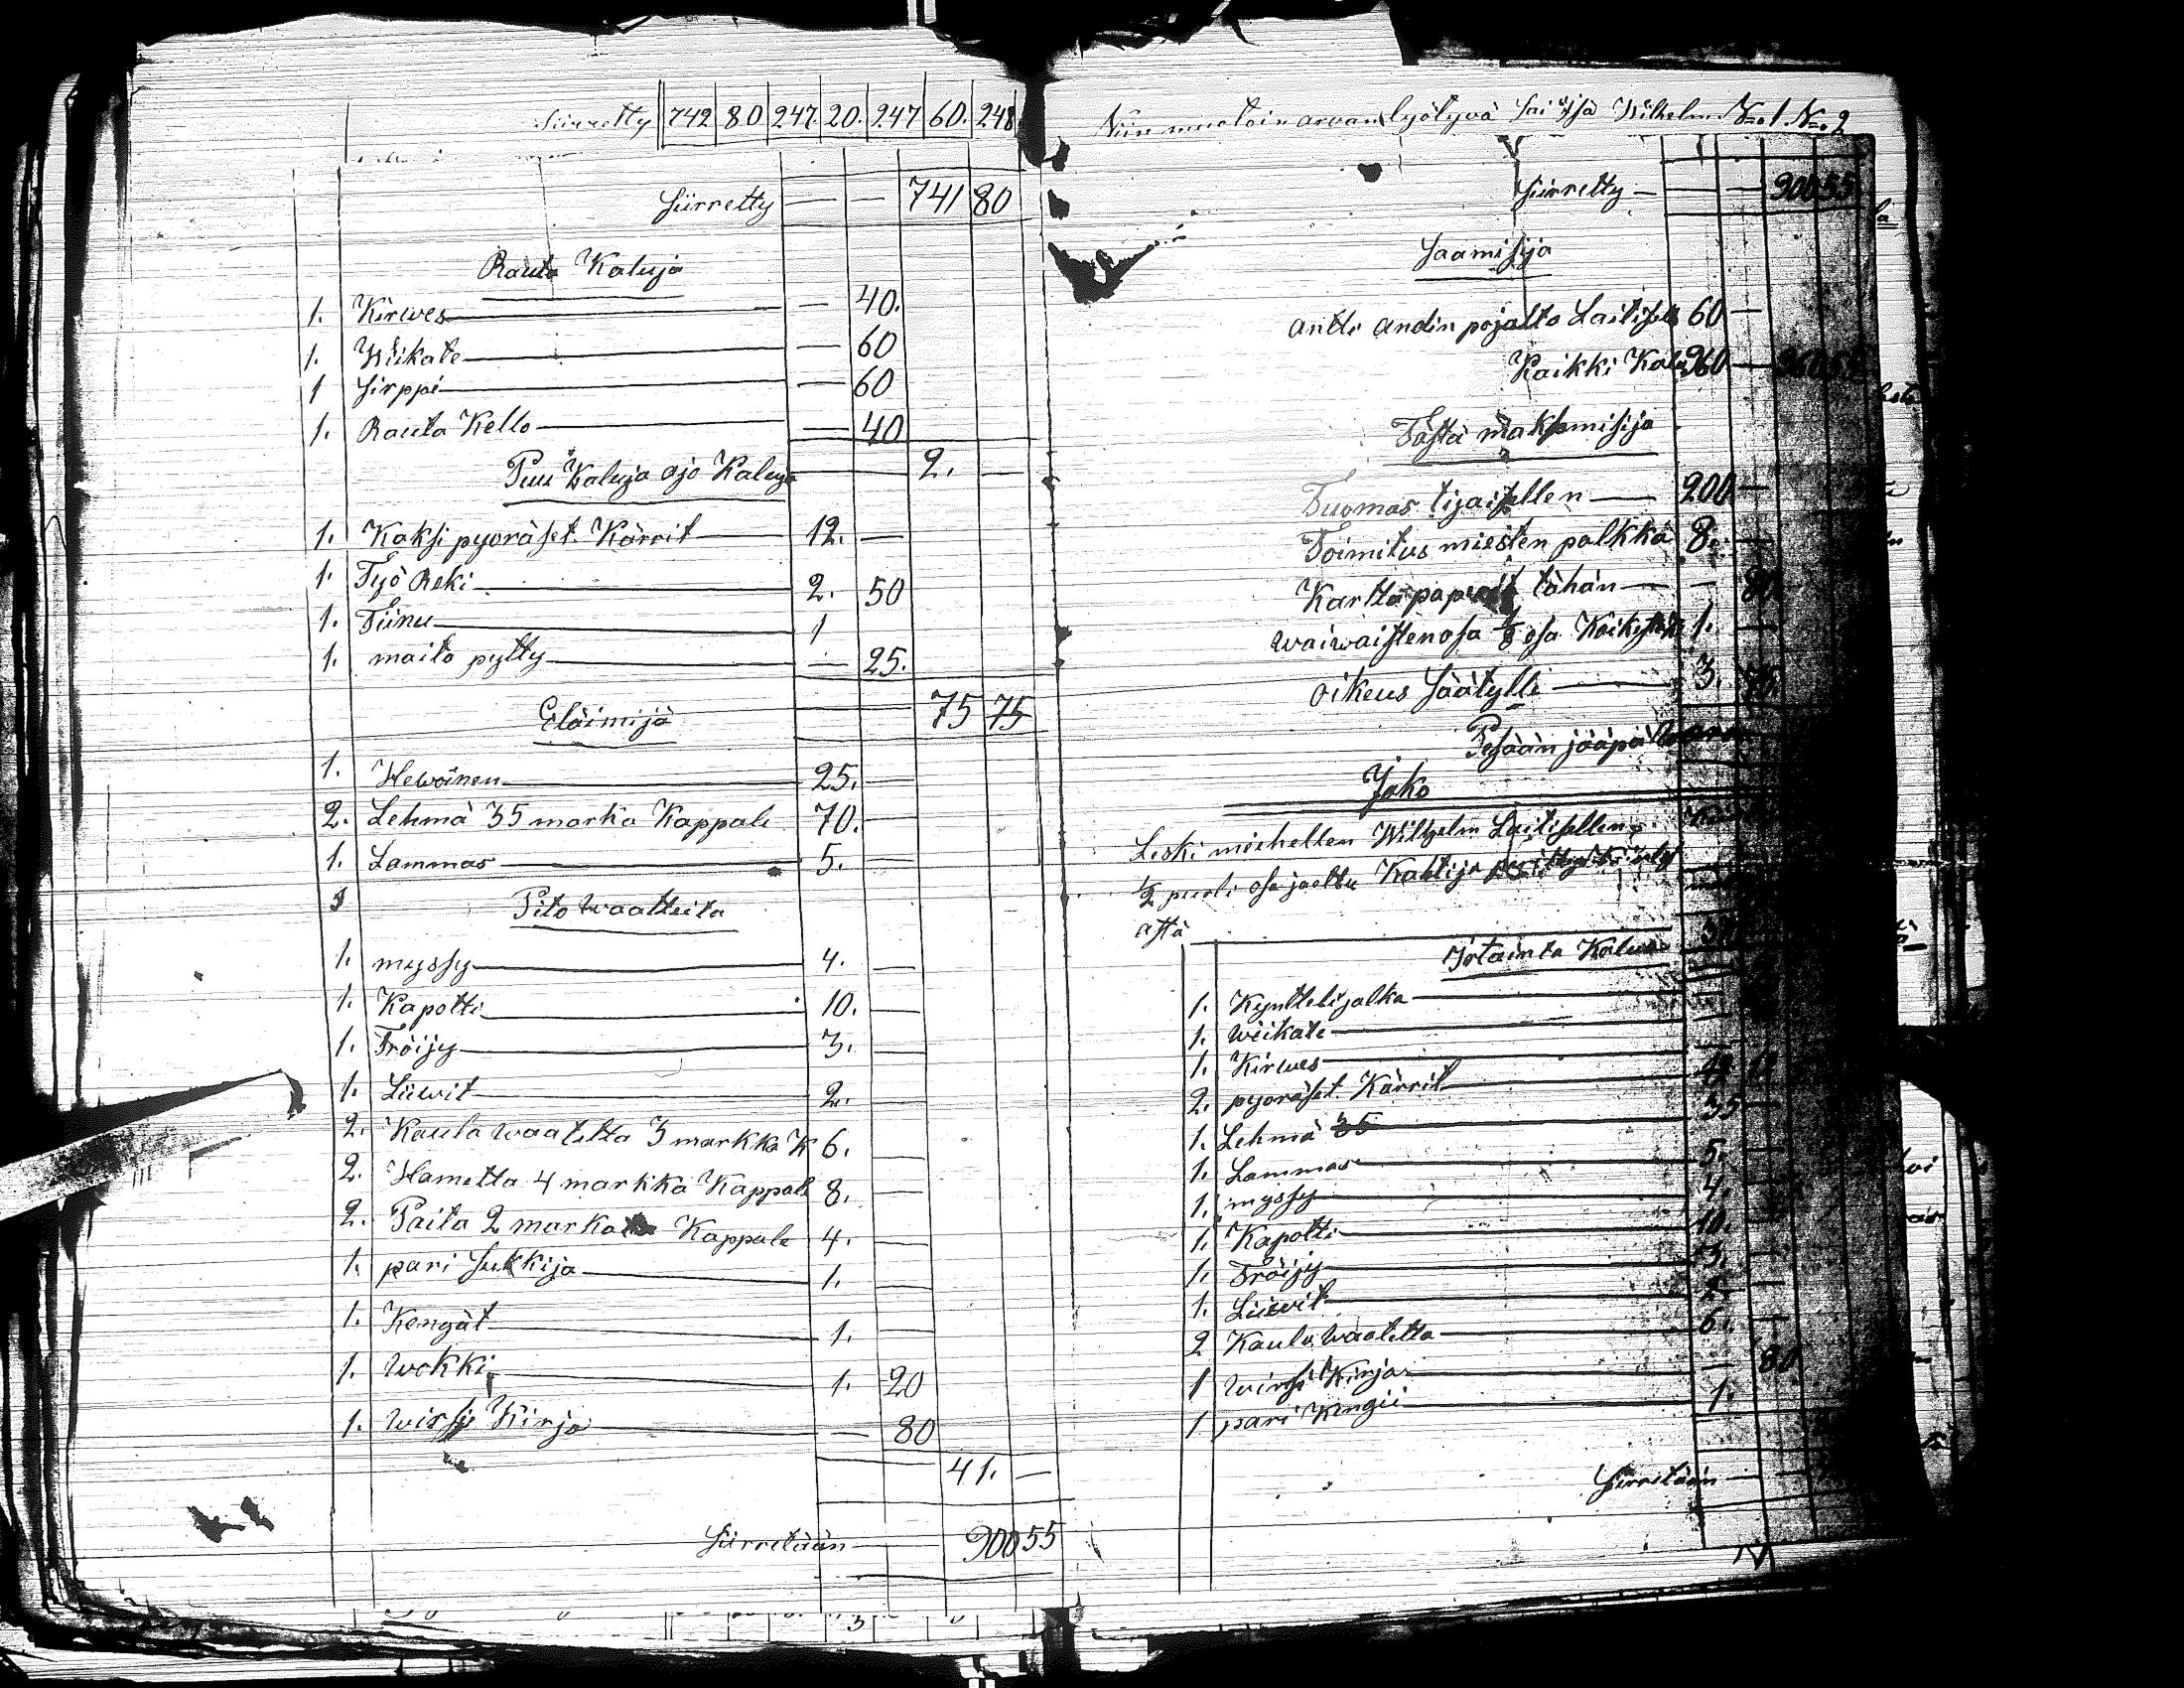 Siirretty 742 80 247. 20. 247 60. 248
Siirretty — — 741 80
Rauta Kaluja
1. Kirwes — 40.
1. Wiikate — 60
1 Sirppi — 60
1. Rauta Kello — 40
Puu Kaluja ajo Kaluja 2. —
1. Kaksi pyöräset. Kärrit 12. —
1. Työ Reki 2. 50
1. Tiinu 1
1. maito pytty — 25.
Eläimijä 75 75
1. Hewoinen 25. —
2. Lehmä 35 marka Kappale 70. —
1. Lammas 5. —
Pito waatteita
1. myssy 4. —
1. Kapotti 10. —
1. Tröijy 3. —
1. Liiwit 2. —
2. Kaula waatetta 3 markka K 6. —
2. Hametta 4 markka Kappale 8. —
2. Paita 2 marka Kappale 4. —
1. pari Sukkija 1. —
1. Kengät 1. —
1. Wokki 1. 20
1. Wirsi Kirja — 80
41. —
Siirretään 900 55
Niin muotoin arvan lyötyvä sai isä Wilhelm No. 1. No. 2
Siirretty — — 900 55
Saamisija
antti andin pojalta Laitiselt 60 —
Kaikki Kalu 960 — 960 55
Tästä maksamisija
Tuomas tijaisellen 200 —
Toimitus miesten palkka 8. —
Kartta paperit tähän — 80
waiwaisten osa 1/8 osa 1. —
oikeus Säätylle 3. 75.
Pesään jääpä
Jako
Leski miehellen Wilhelm Laitisellen
1/2 puoli osa jaettu
asta
Irtainta Kalua
1. Kynttelijalka
1. Wiikate
1. Kirwes
2. pyöräset. Kärrit 12
1. Lehmä 35 35 —
1. Lammas 5.
1. myssy 4.
1. Kapotti 10.
1. Tröijy 3. —
1. Liiwit 2 —
2 Kaula waatetta 6. —
1 Wirsi Kirja — 80
1 pari Kengii 1.
Siirretään